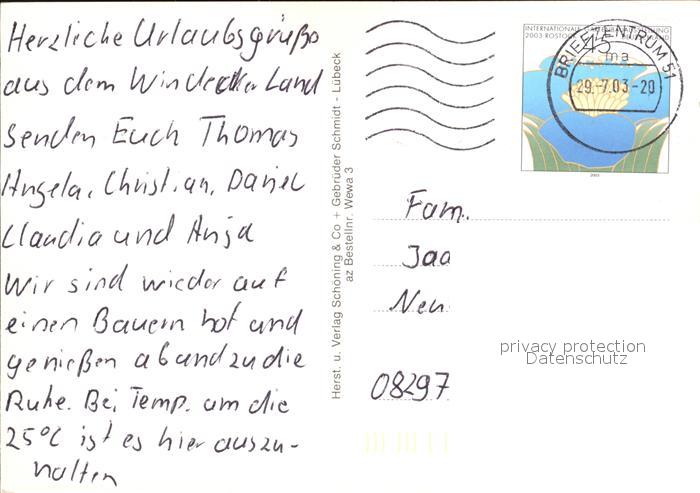 Herzliche Urlaubsgrüße
aus dem Windecker Land
senden Euch Thomas
Angela, Christian, Daniel
Claudia und Anja
Wir sind wieder auf
einen Bauern hof und
genießen ab und zu die
Ruhe. Bei Temp. um die
25°C ist es hier auszu-
halten
Herst. u. Verlag Schöning & Co + Gebrüder Schmidt - Lübeck
az Bestellnr. Wewa 3
INTERNATIONALE GARTENBAUAUSSTELLUNG
2003 ROSTOCK
BRIEFZENTRUM 51
45
ma
29.-7.03-20
2003
Fam.
Jaa
Neu
08297
privacy protection
Datenschutz